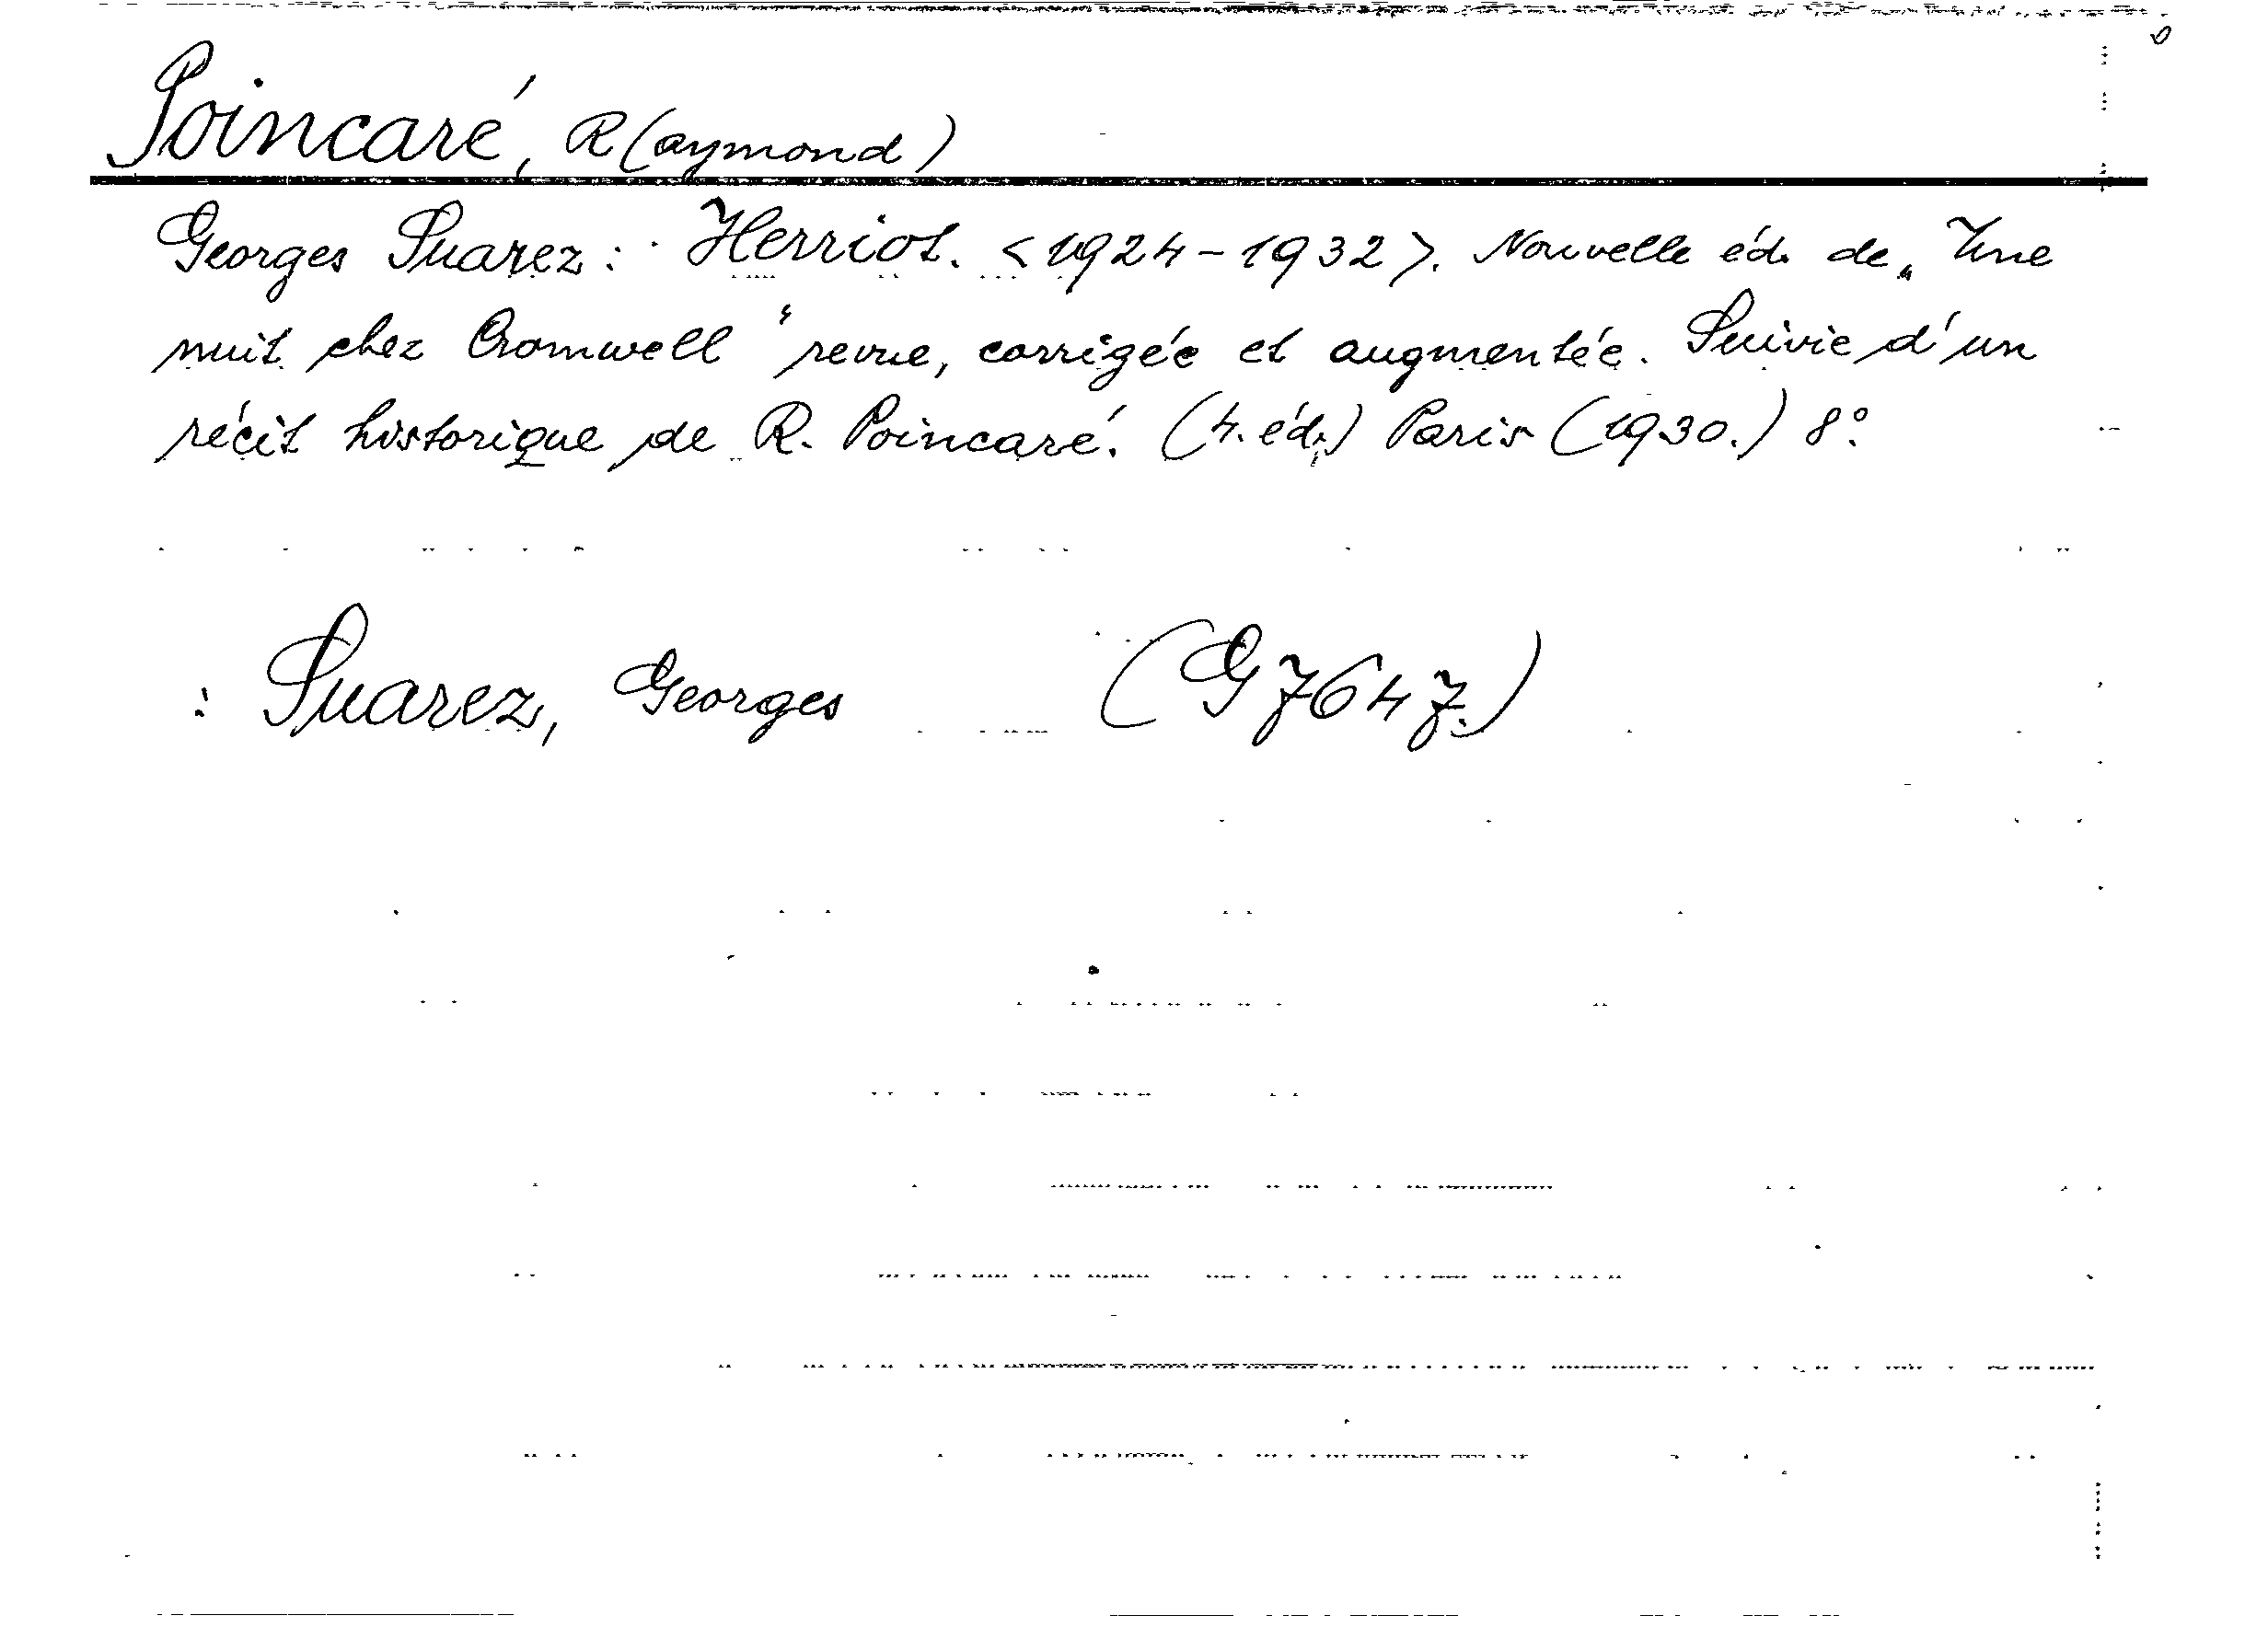 Poincaré, R(aymond)
Georges Suarez: Herriot. <1924-1932>. Nouvelle éd. de „Une
nuit chez Cromwell“ revue, corrigée et augmentée. Suivie d'un
récit historique de R. Poincaré. (4. éd.) Paris (1930.) 8°.
: Suarez, Georges (G 7647.)